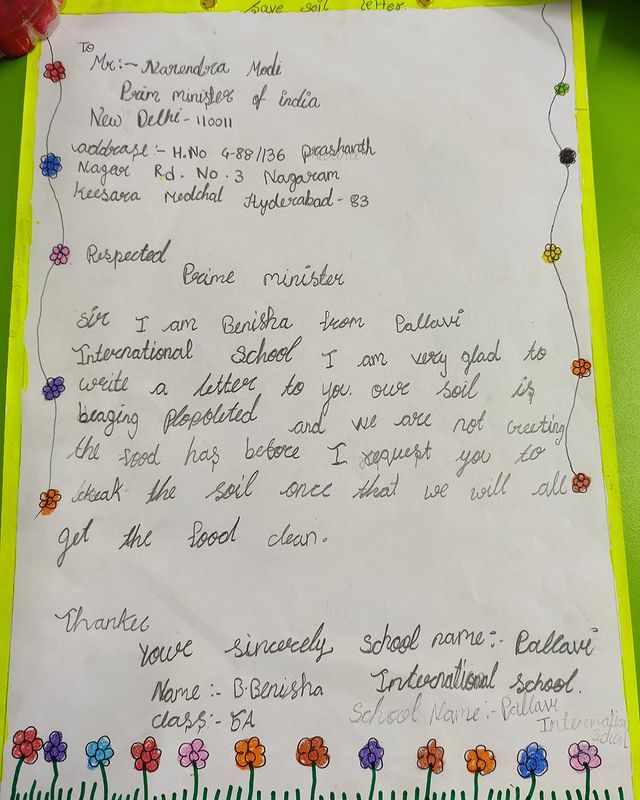 save soil letter.
To
Mr:- Narendra Modi
Prim minister of india
New Delhi - 110011
addrase :- H.No 4-88/136 prashanth
Nagar Rd. No. 3 Nagaram
Keesara Medchal Hyderabad - 83
Respected
Prime minister
Sir I am Benisha from Pallavi
International School I am very glad to
write a letter to you. our soil is
beaging plopoleted and we are not creeting
the food has before I request you to
the soil once that we will all
get the food clean.
Thanker
youre sincerely School name:- Pallavi
Name :- B.Benisha International school.
class:- 5A School Name:- Pallavi
International
School